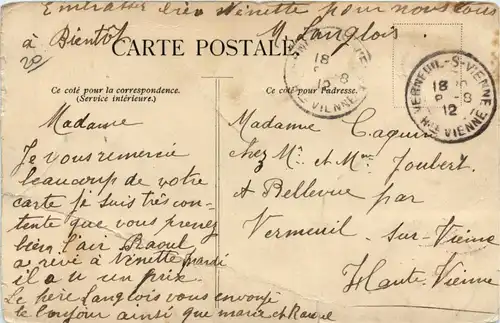 Embrasser bien Ninette pour nous tous
à Bientôt M Langlois
20
CARTE POSTALE
Ce côté pour la correspondance.
(Service intérieure.)
Ce côté pour l'adresse.
18
12
VIENNE
VERNEUIL-S-VIENNE
18
8 - 8
12
HTE VIENNE
Madame
Je vous remercie
beaucoup de votre
carte je suis très con-
tente que vous prenez
bien l'air Raoul
a rêvé à Ninette mardi
il a u un prix.
Le père Langlois vous envoye
le bonjour ainsi que marie et Raoul
Madame Caquin
chez Mr et Mme Joubert
à Bellevue par
Vermeuil sur-Vienne
Haute-Vienne